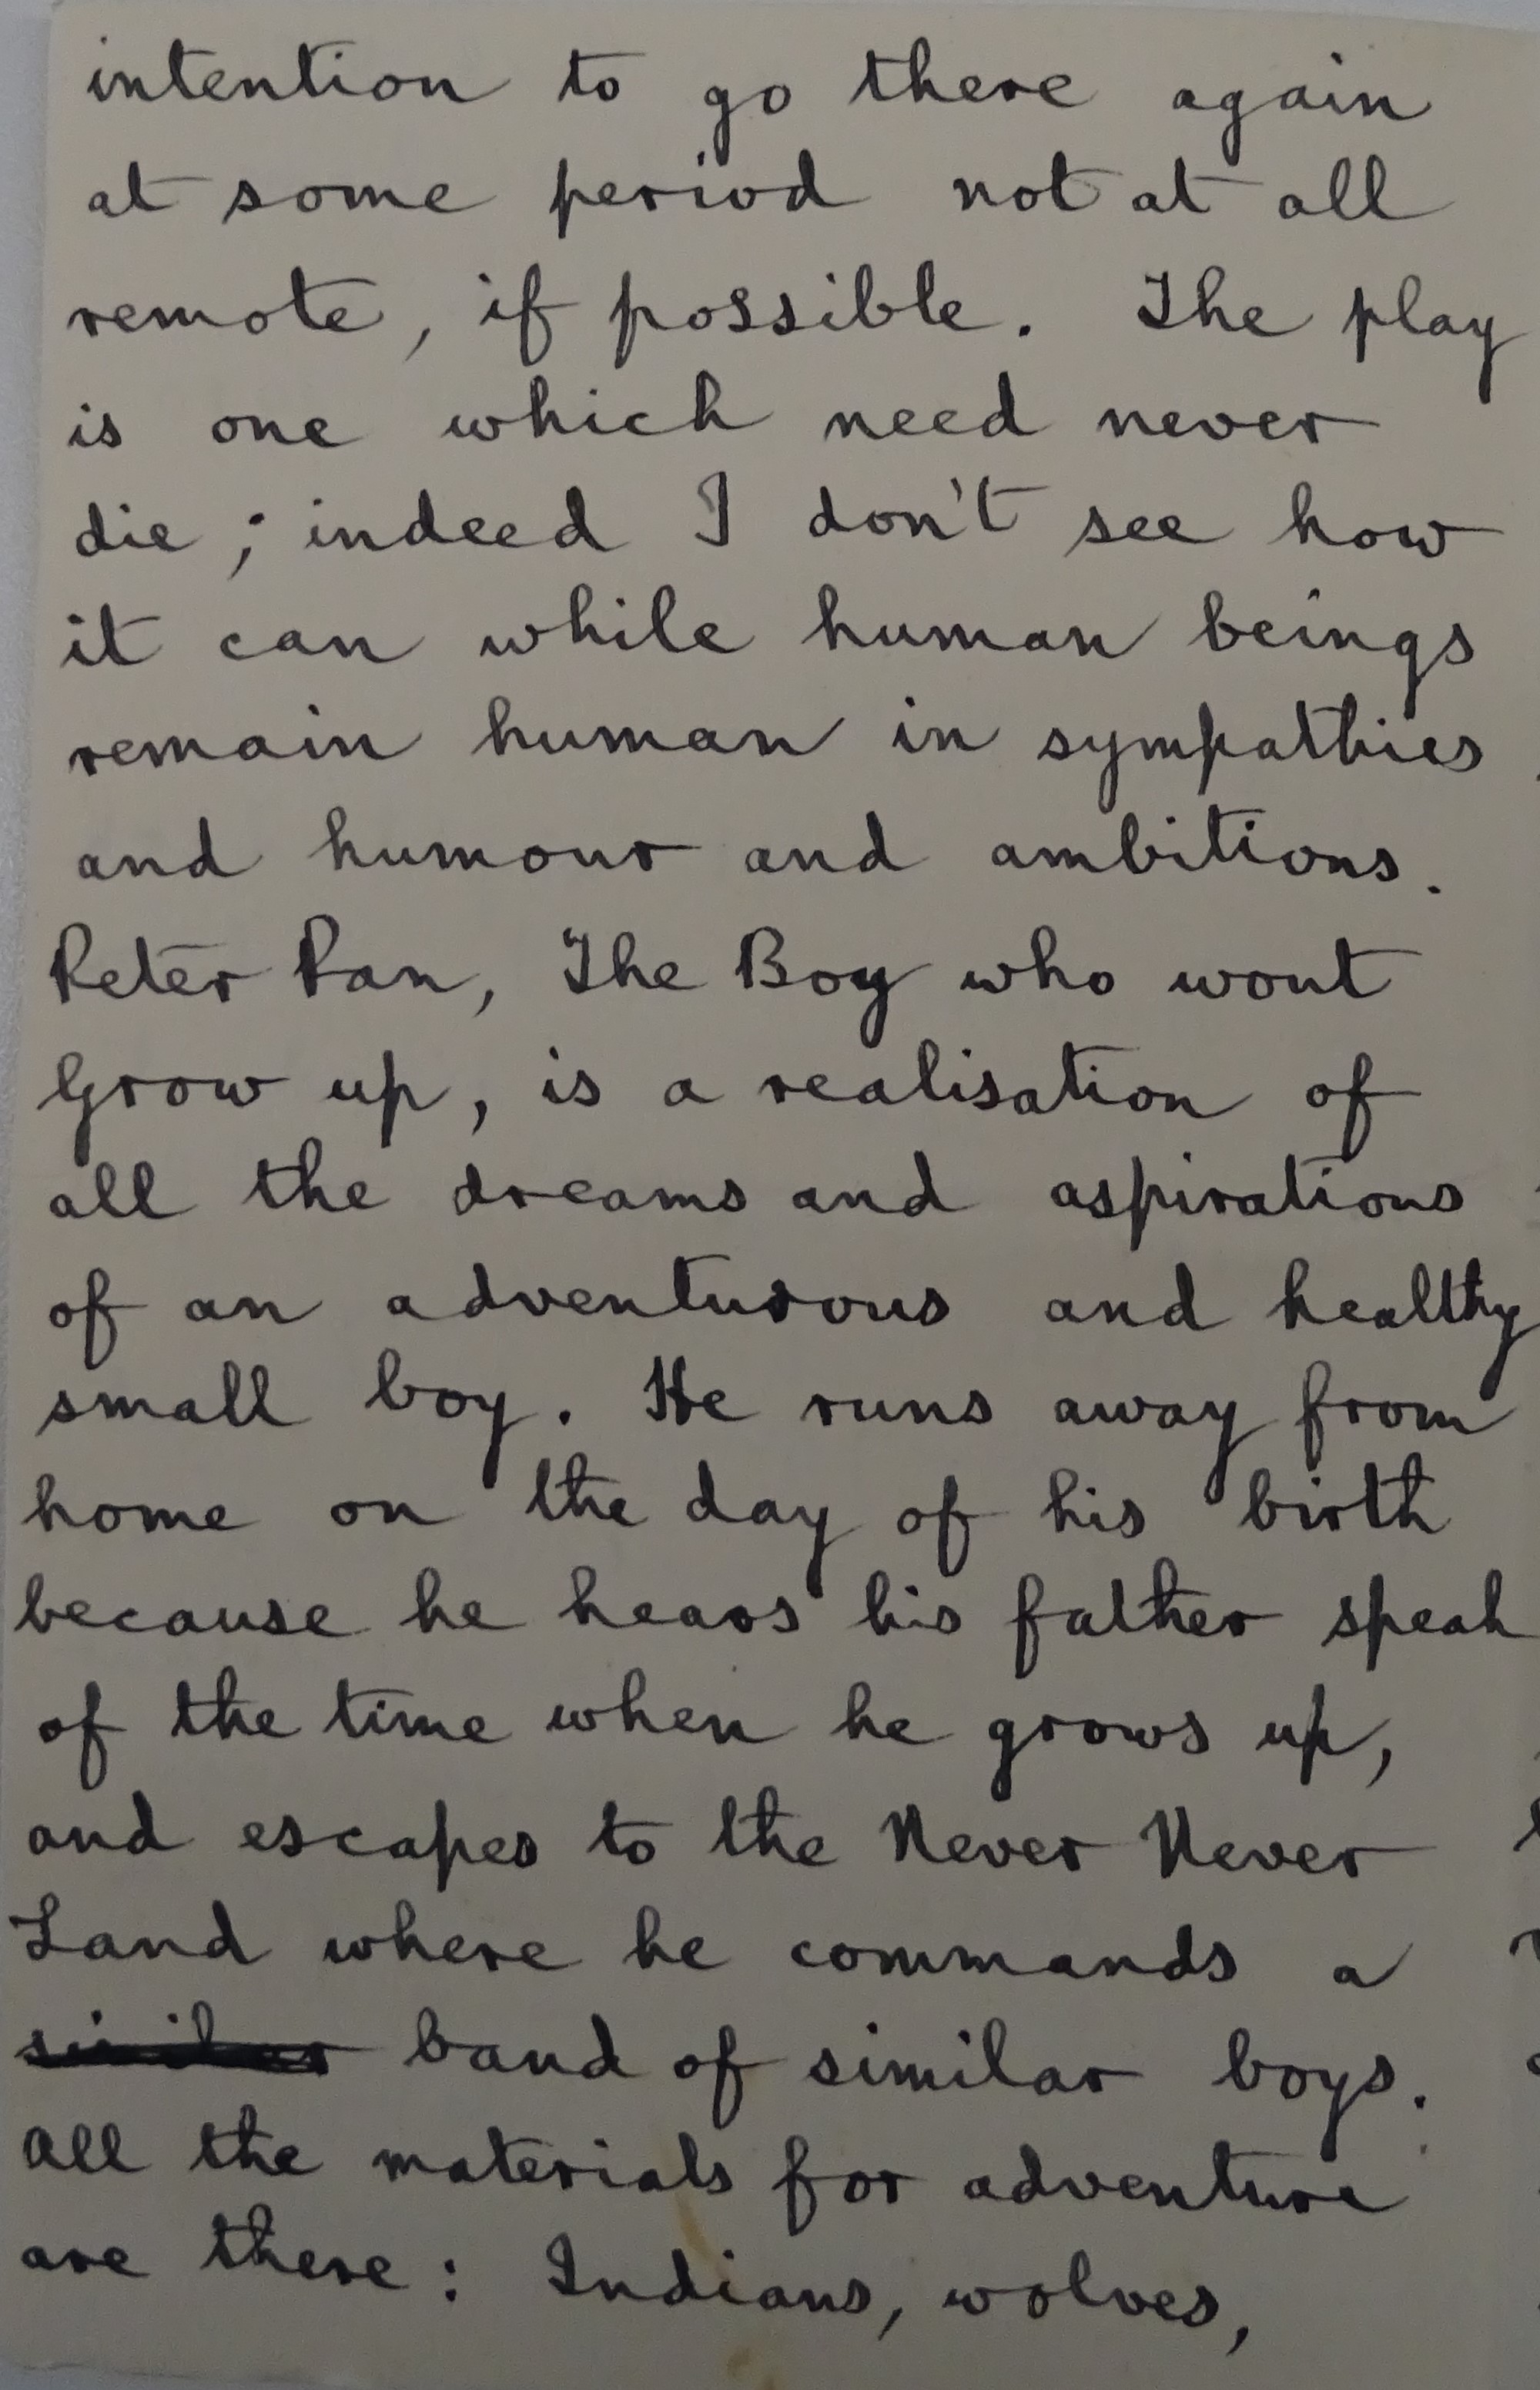 intention to go there again
at some period not at all
remote, if possible. The play
is one which need never
die; indeed I don't see how
it can while human beings
remain human in sympathies
and humour and ambitions.
Peter Pan, The Boy who wont
Grow up, is a realisation of
all the dreams and aspirations
of an adventurous and healthy
small boy. He runs away from
home on the day of his birth
because he hears his father speak
of the time when he grows up,
and escapes to the Never Never
Land where he commands a
similar band of similar boys.
All the materials for adventure
are there: Indians, wolves,